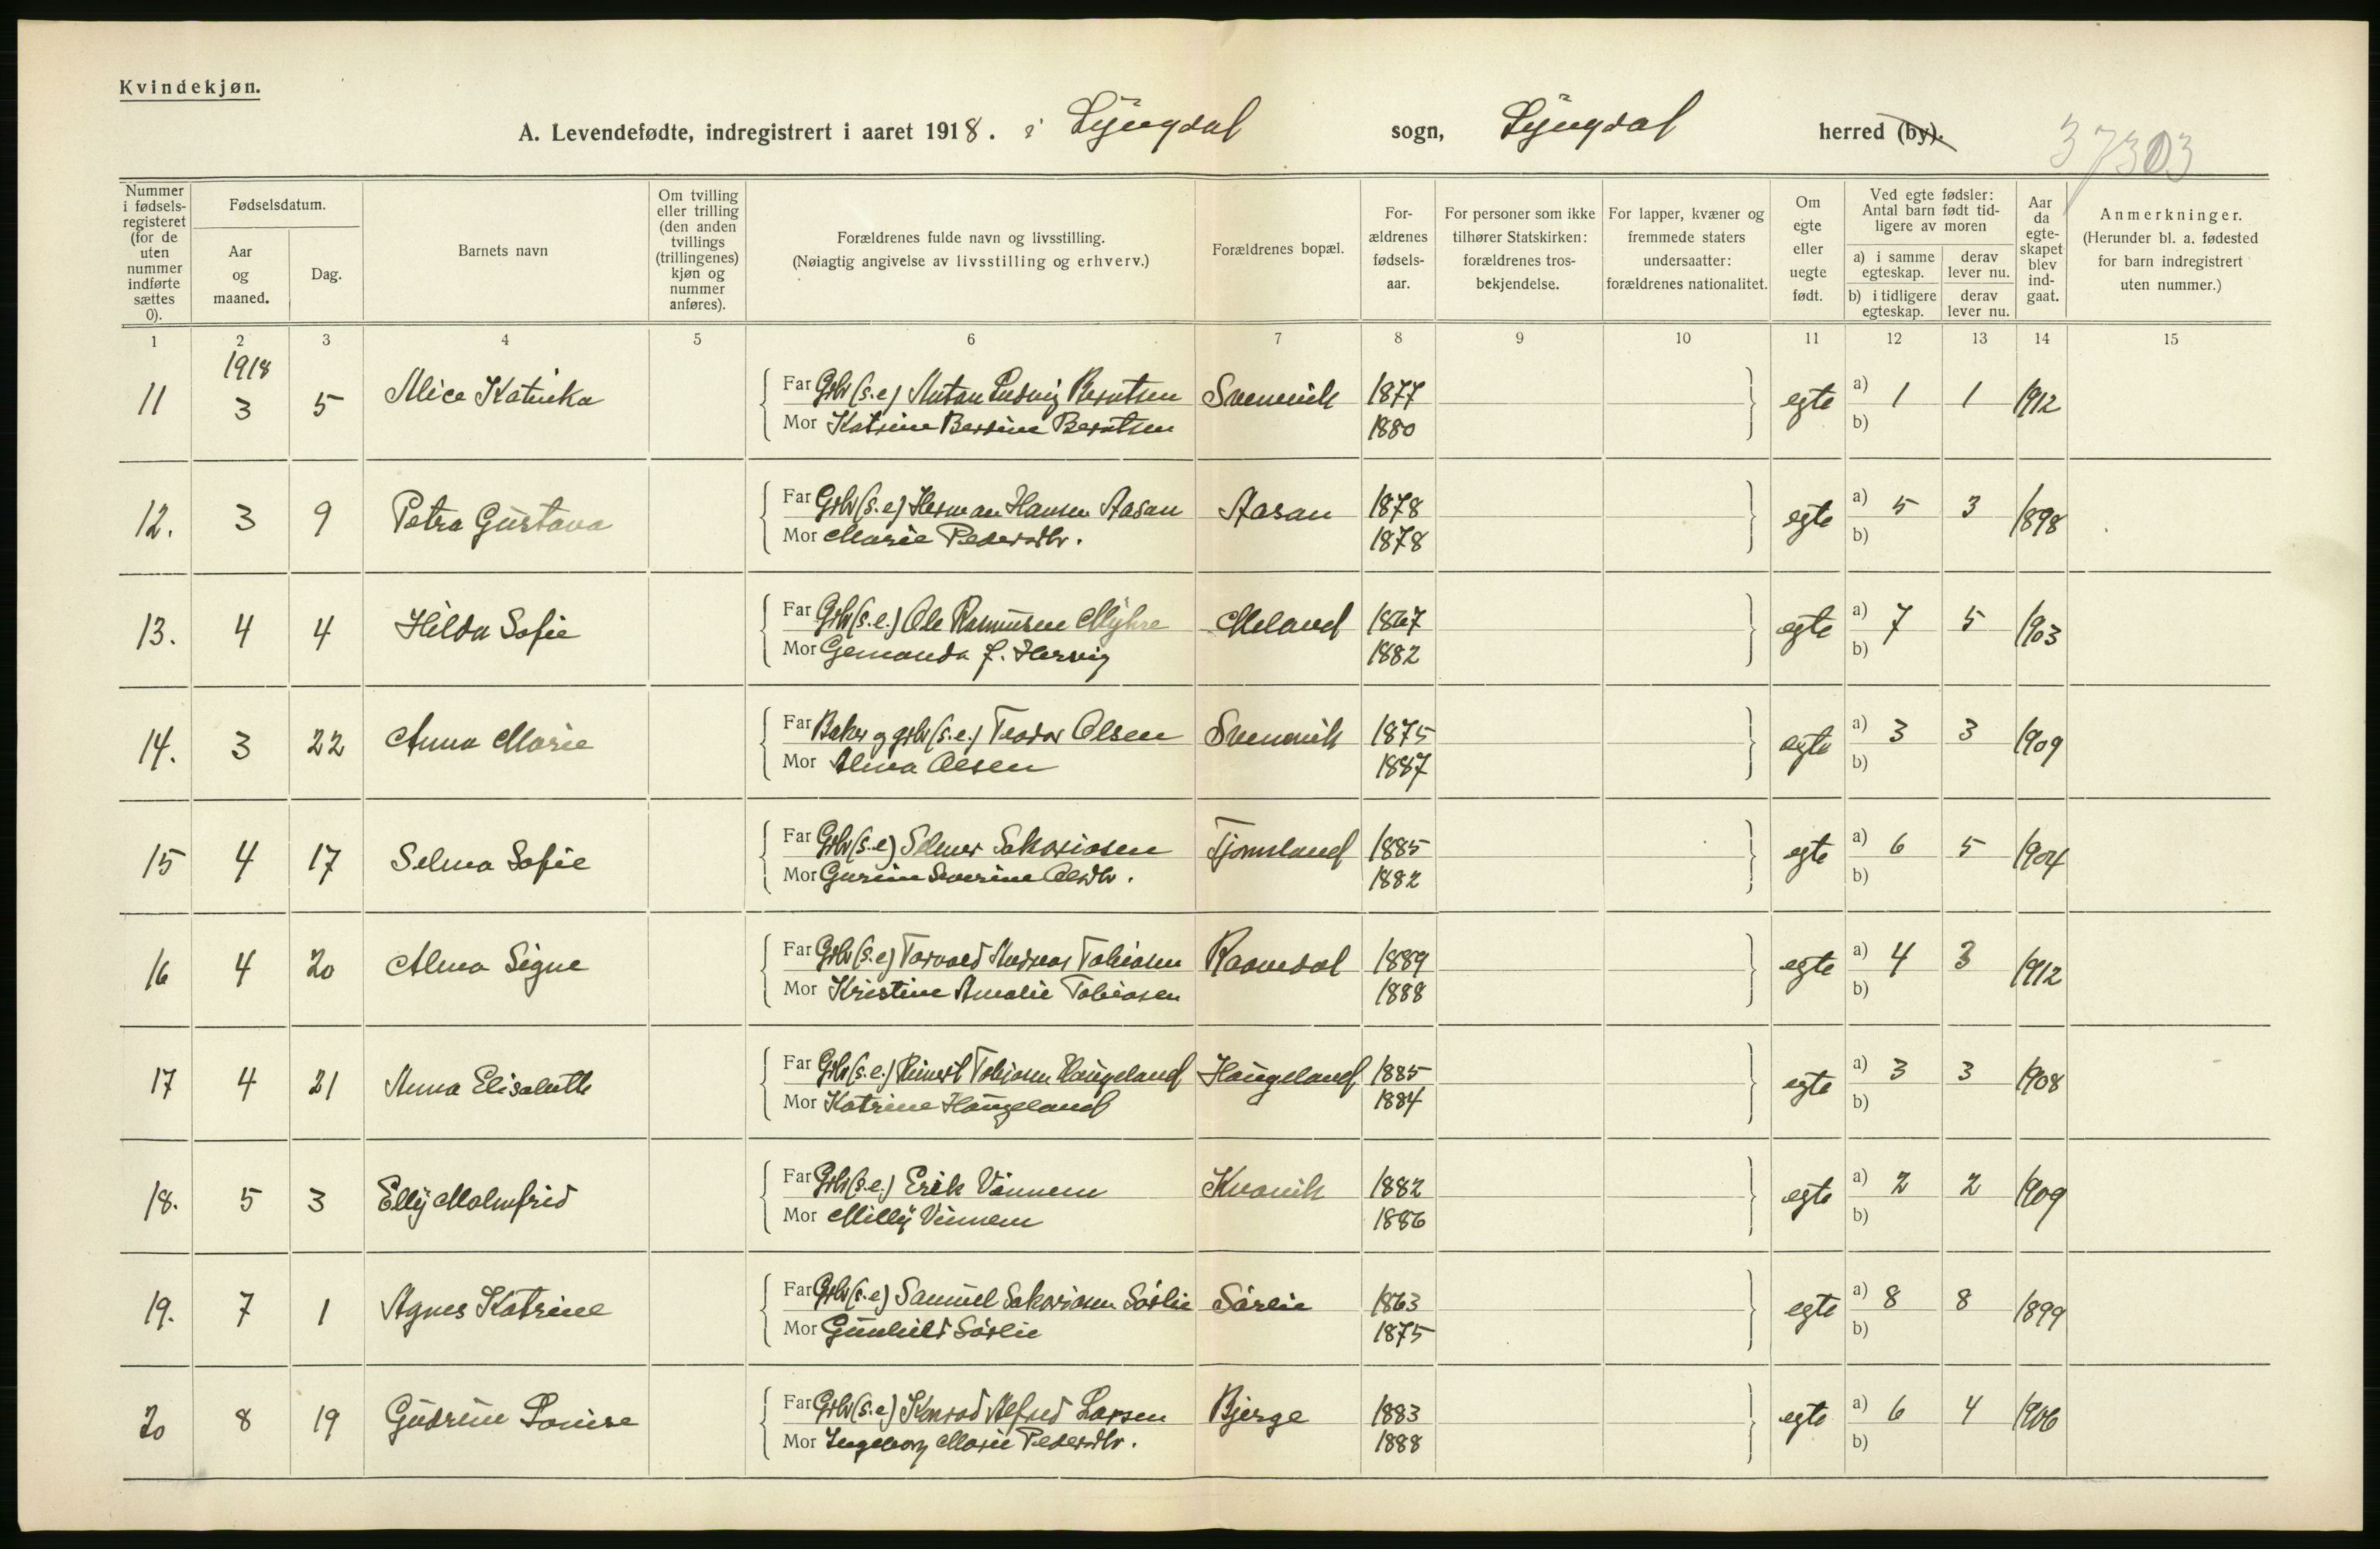 Kvindekjøn.
A. Levendefødte, indregistrert i aaret 1918. i Lyngdal sogn, Lyngdal herred (by).
37303
Nummer i fødselsregisteret (for de uten nummer indførte sættes 0). Fødselsdatum. Aar og maaned. Dag. Barnets navn Om tvilling eller trilling (den anden tvillings (trillingenes) kjøn og nummer anføres). Forældrenes fulde navn og livsstilling. (Nøiagtig angivelse av livsstilling og erhverv.) Forældrenes bopæl. Forældrenes fødselsaar. For personer som ikke tilhører Statskirken: forældrenes trosbekjendelse. For lapper, kvæner og fremmede staters undersaatter: forældrenes nationalitet. Om egte eller uegte født. Ved egte fødsler: Antal barn født tidligere av moren a) i samme egteskap. derav lever nu. b) i tidligere egteskap. derav lever nu. Aar da egteskapet blev indgaat. Anmerkninger. (Herunder bl. a. fødested for barn indregistrert uten nummer.)
1 2 3 4 5 6 7 8 9 10 11 12 13 14 15
1918
11 3 5 Alice Katinka Far Grbr (s.e) Anton Ludvig Berntsen Svennevik 1877 egte a) 1 1 1912
Mor Katrine Bertine Berntsen 1880 b)
12. 3 9 Petra Gustava Far Grbr (s.e) Herman Hansen Aasan Aasan 1878 egte a) 5 3 1898
Mor Marie Pedersdtr. 1878 b)
13. 4 4 Hilda Sofie Far Grbr (s.e.) Ole Rasmusen Myhre Meland 1867 egte a) 7 5 1903
Mor Gemanda f. Hervig 1882 b)
14. 3 22 Anna Marie Far Baker og grbr (s.e.) Teodor Olsen Svennevik 1875 egte a) 3 3 1909
Mor Alma Olsen 1887 b)
15 4 17 Selma Sofie Far Grbr (s.e) Selmer Sakariasen Tjomsland 1885 egte a) 6 5 1904
Mor Gurine Severine Olsdtr. 1882 b)
16 4 20 Alma Signe Far Grbr (s.e) Torvald Andreas Tobiasen Raamdal 1889 egte a) 4 3 1912
Mor Kristine Amalie Tobiasen 1888 b)
17 4 21 Anna Elisabeth Far Grbr (s.e.) Reinert Tobiasen Haugeland Haugeland 1885 egte a) 3 3 1908
Mor Katrine Haugeland 1884 b)
18. 5 3 Elly Malmfrid Far Grbr (s.e.) Erik Vinnem Kvavik 1882 egte a) 2 2 1909
Mor Milly Vinnem 1886 b)
19. 7 1 Agnes Katrine Far Grbr (s.e) Samuel Sakariasen Sørlie Sørlie 1863 egte a) 8 8 1899
Mor Gunhild Sørlie 1875 b)
20 8 19 Gudrun Louise Far Grbr (s.e) Konrad Alfred Larsen Bjerge 1883 egte a) 6 4 1906
Mor Ingeborg Marie Pedersdtr. 1888 b)